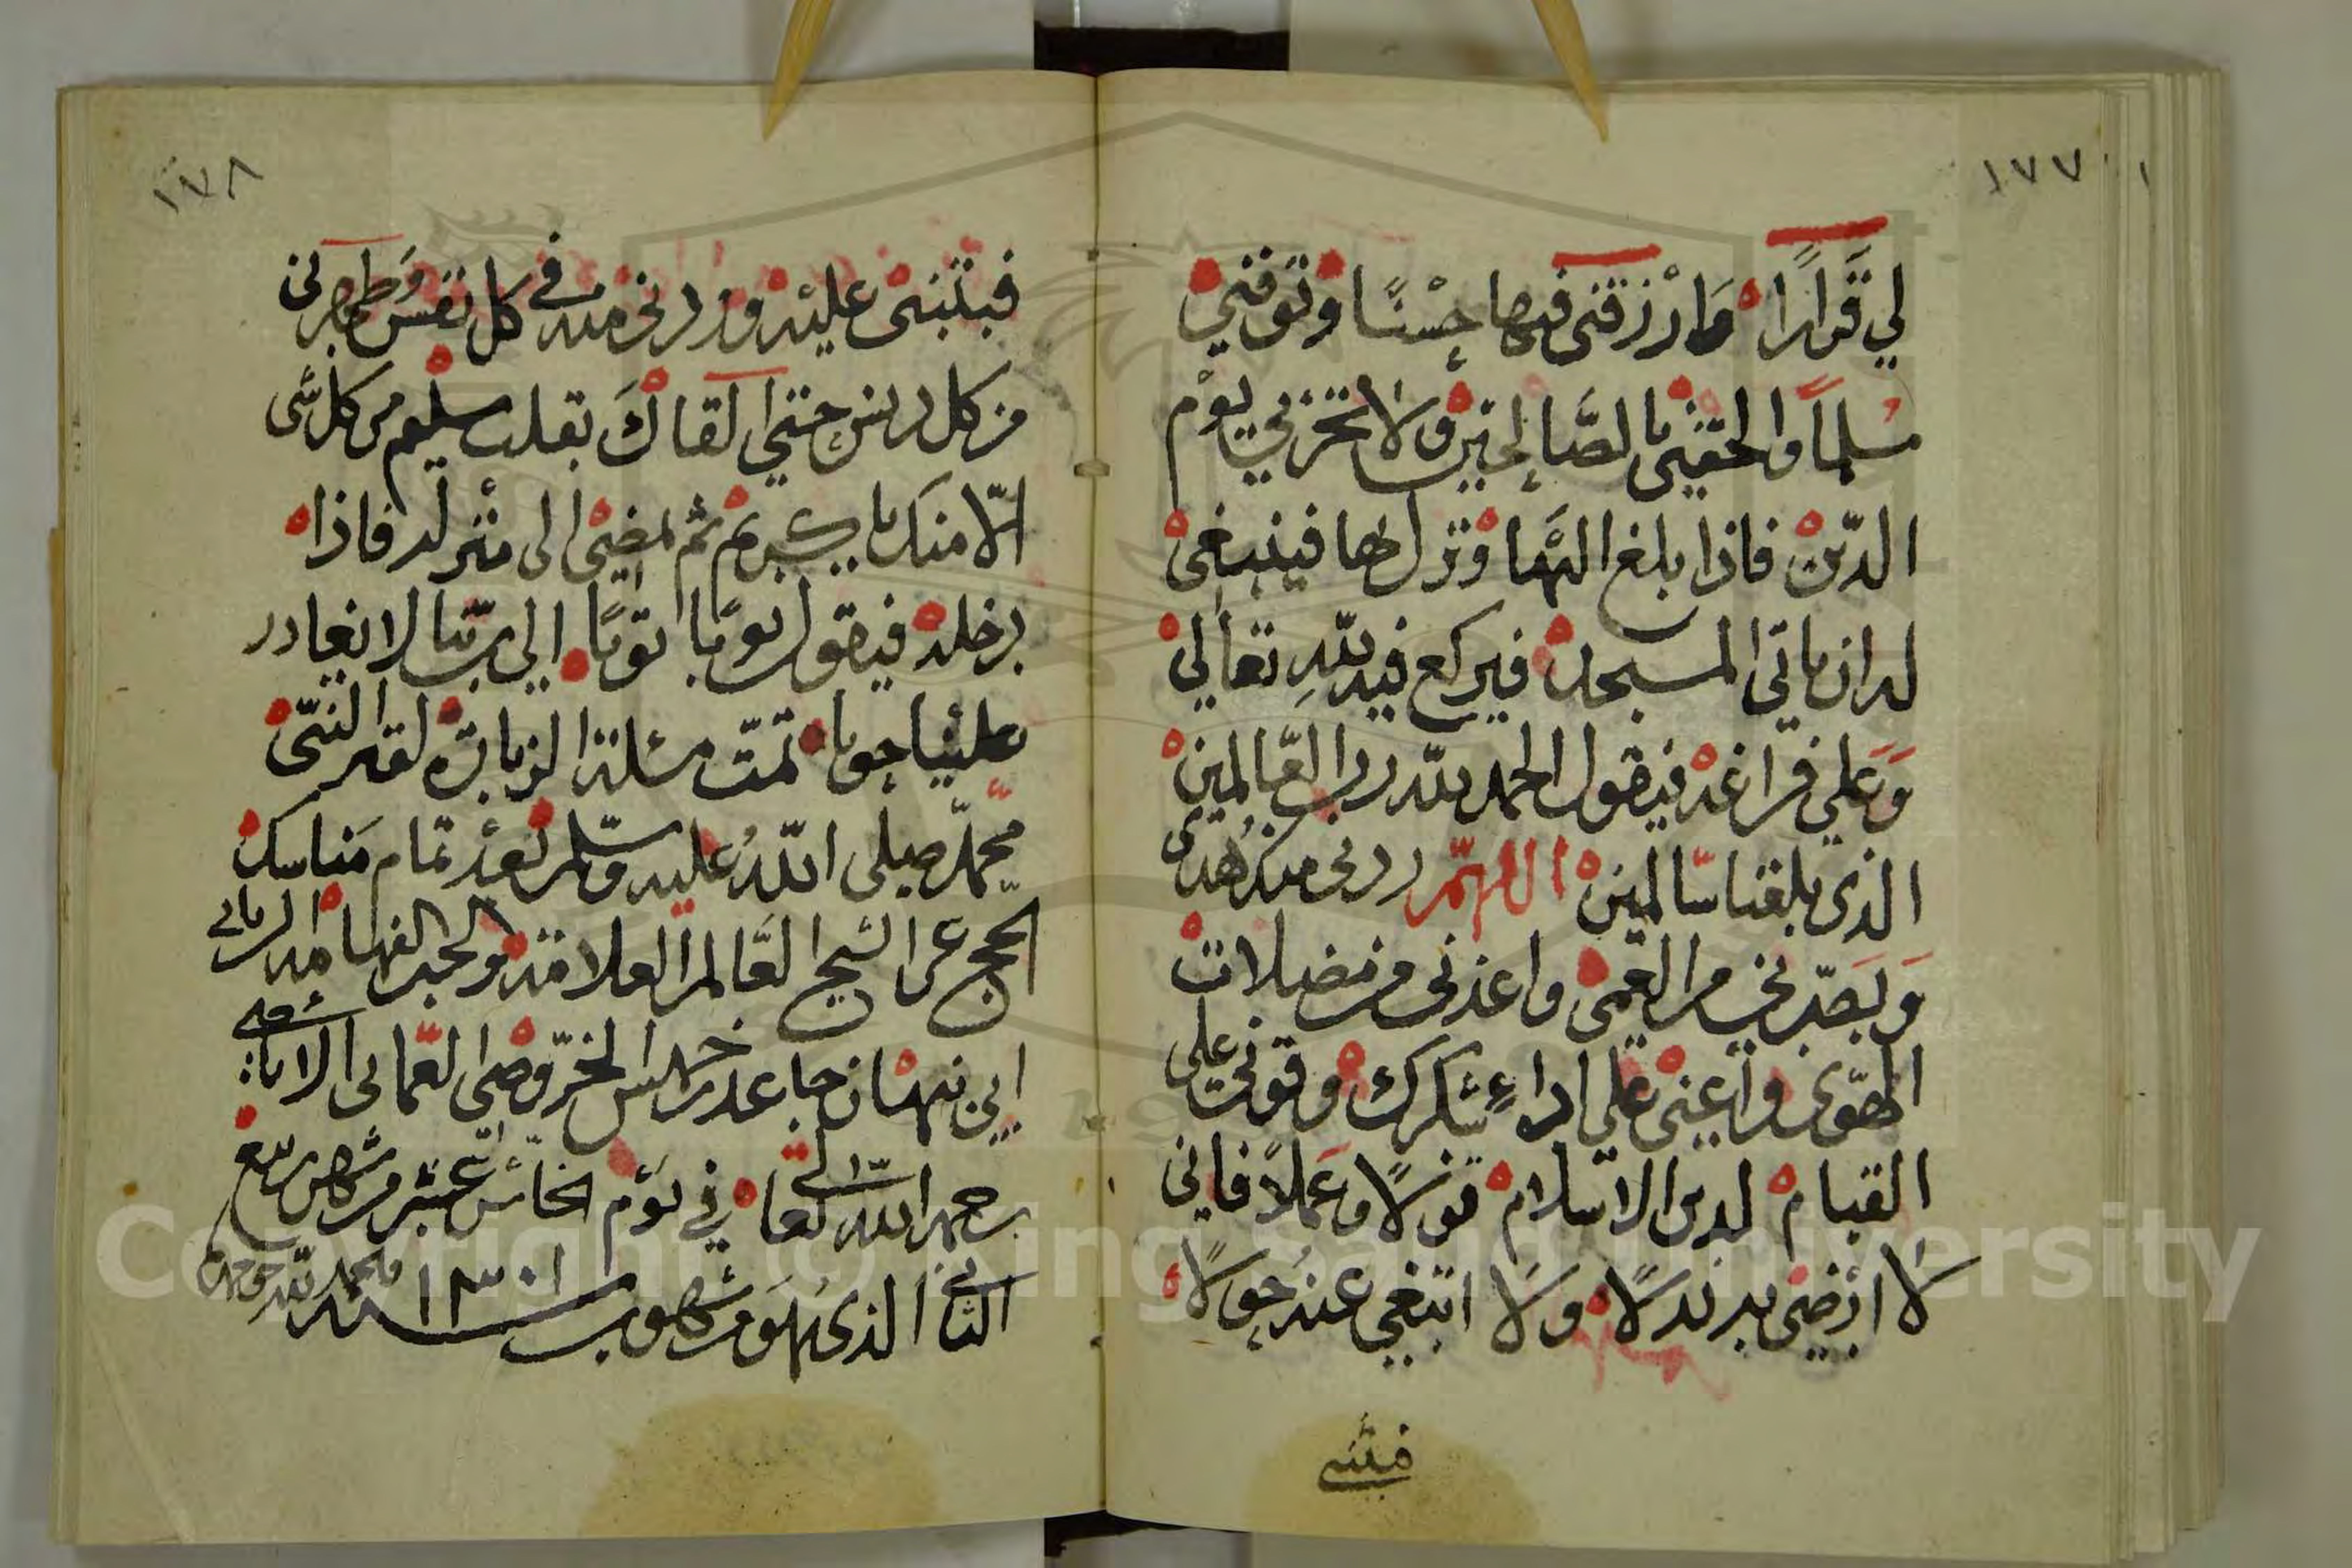 ١٧٧
لي قَرارًا وارْزقني فيها حِسْنًا وتوفني
مسلمًا والحقني بالصَّالحين ولا تخزني يوْم
الدّين فاذا بلغ اليها ونزل بها فينبغي
له ان ياتي المسجد فيركع فيه للهِ تعالى
وَعلي فراغه فيقول الحمد لله رب العَالمين
الذي بلغنا سالمين اللهمّ زدني منك هُدى
وَبَصّرني من العمى واعذني من مضلات
الهوى واعِنّي علي اداءِ شكرك وقوني على
القيام لدين الاسلام قولًا وعَملًا فاني
لا ارْضى به بدلًا ولا ابتغي عنه حِولًا
فثبتني
١٧٨
فبثبتني عليه وزدني منه في كل نفس وَطهرني
من كل دنس حتي القاكَ بقلب سليم من كل شي
الّا منك يا كريم ثم يمضي الى منزله فاذا
دخله فيقول توبًا توبًا الي ربّنا لا يغادر
علينا حوبا تمّت مسئلة الزيارة لقبر النبّي
محمّد صلى اللهُ عليه وسلم بَعْد تمام مَناسك
الحج عن الشيخ العَالم العلامة والحبر الفهامة الرباني
ابي نبهان جاعد بن خميس الخرّوصي العّماني الاباضي
رحمه الله تعالى في يَوْم الخامس عشر من شهر ربيع
الثاني الذي هو من شهور سنة ١٣٠١ والحمد لله حق حمده